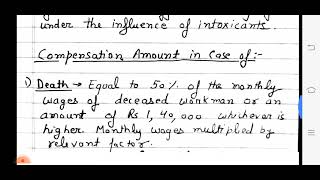 under the influence of intoxicants.
Compensation Amount in Case of :-
1) Death → Equal to 50% of the monthly
wages of deceased workman or an
amount of Rs 1, 40, 000 whichever is
higher. Monthly wages multipled by
relevant factor.